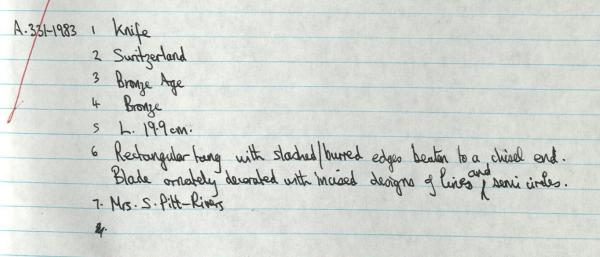 A.331-1983 1 Knife
2 Switzerland
3 Bronze Age
4 Bronze
5 L. 19.9cm.
6 Rectangular tang with slashed/burred edges beaten to a chisel end.
Blade ornately decorated with incised designs of lines and semi circles.
7. Mrs. S. Pitt-Rivers